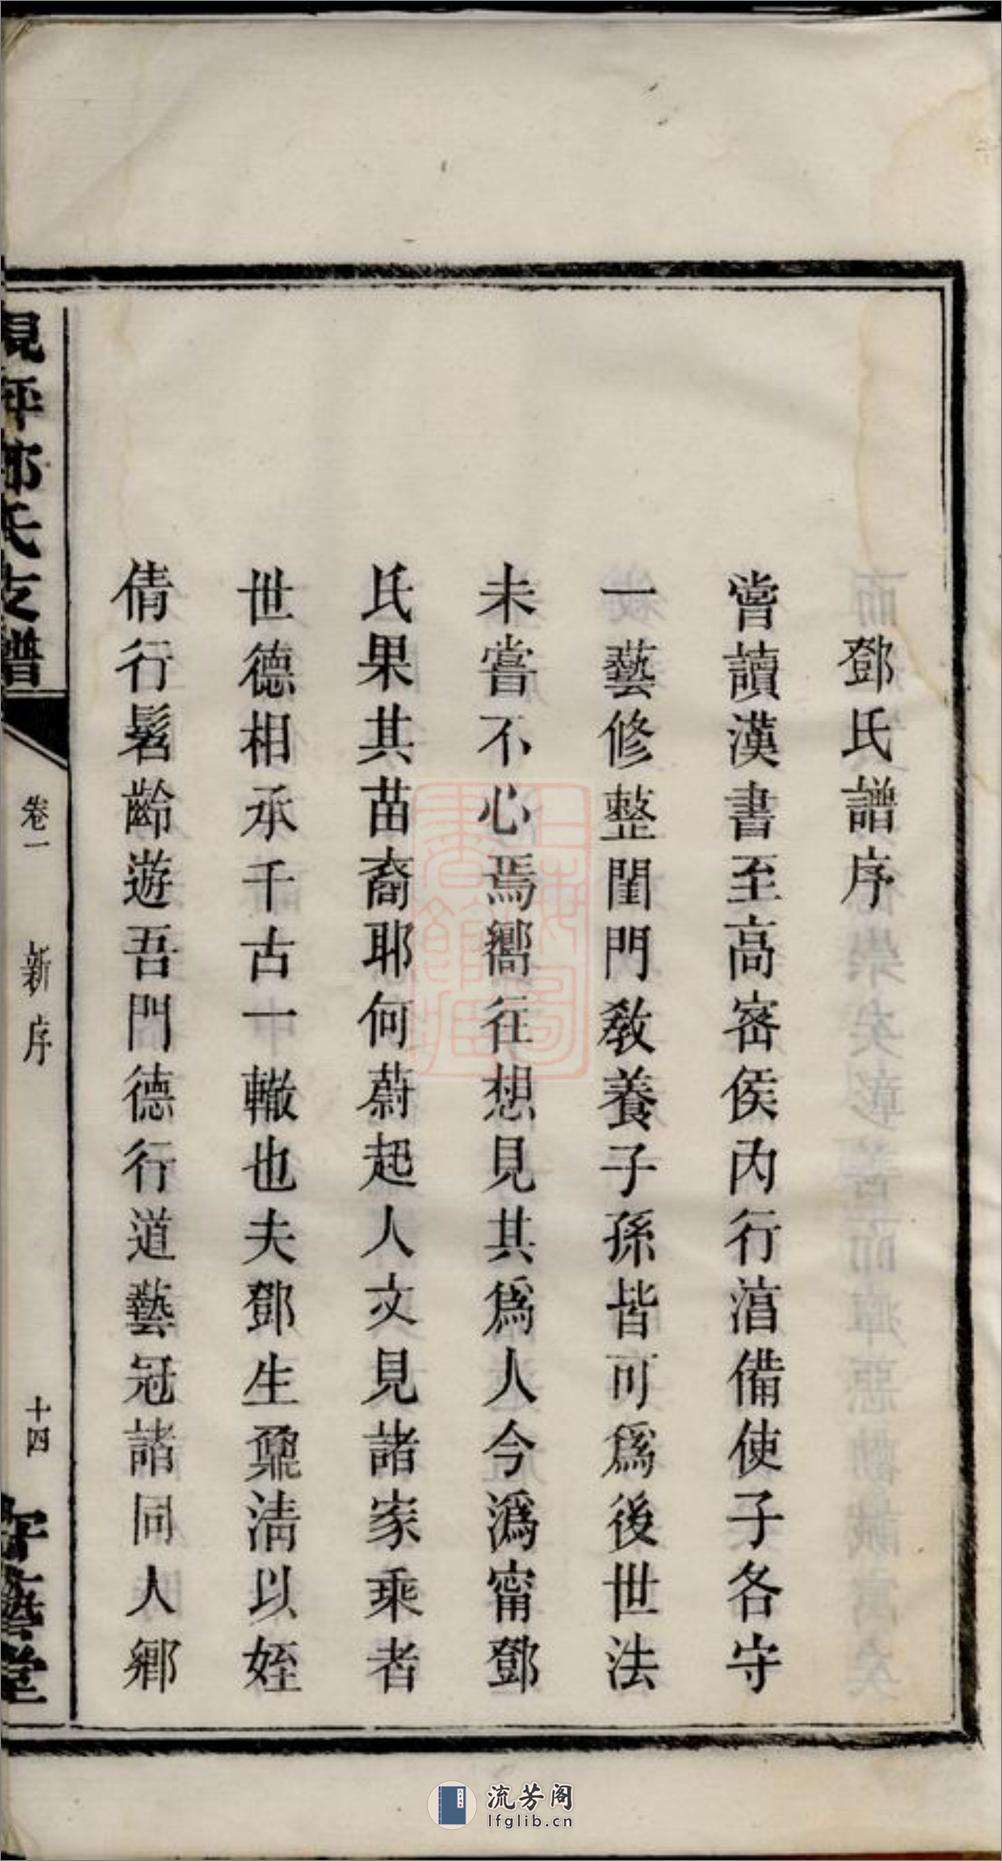 鄧氏譜序
嘗讀漢書至高密侯內行湻備使子各守
一藝修整閨門敎養子孫皆可爲後世法
未嘗不心焉嚮往想見其爲人今潙甯鄧
氏果其苗裔耶何蔚起人文見諸家乘者
世德相承千古一轍也夫鄧生鼐淸以姪
倩行髫齡遊吾門德行道藝冠諸同人鄉
氏支譜
卷一
新序
十四
守藝堂
上海圖書館藏
流芳阁
lfglib.cn